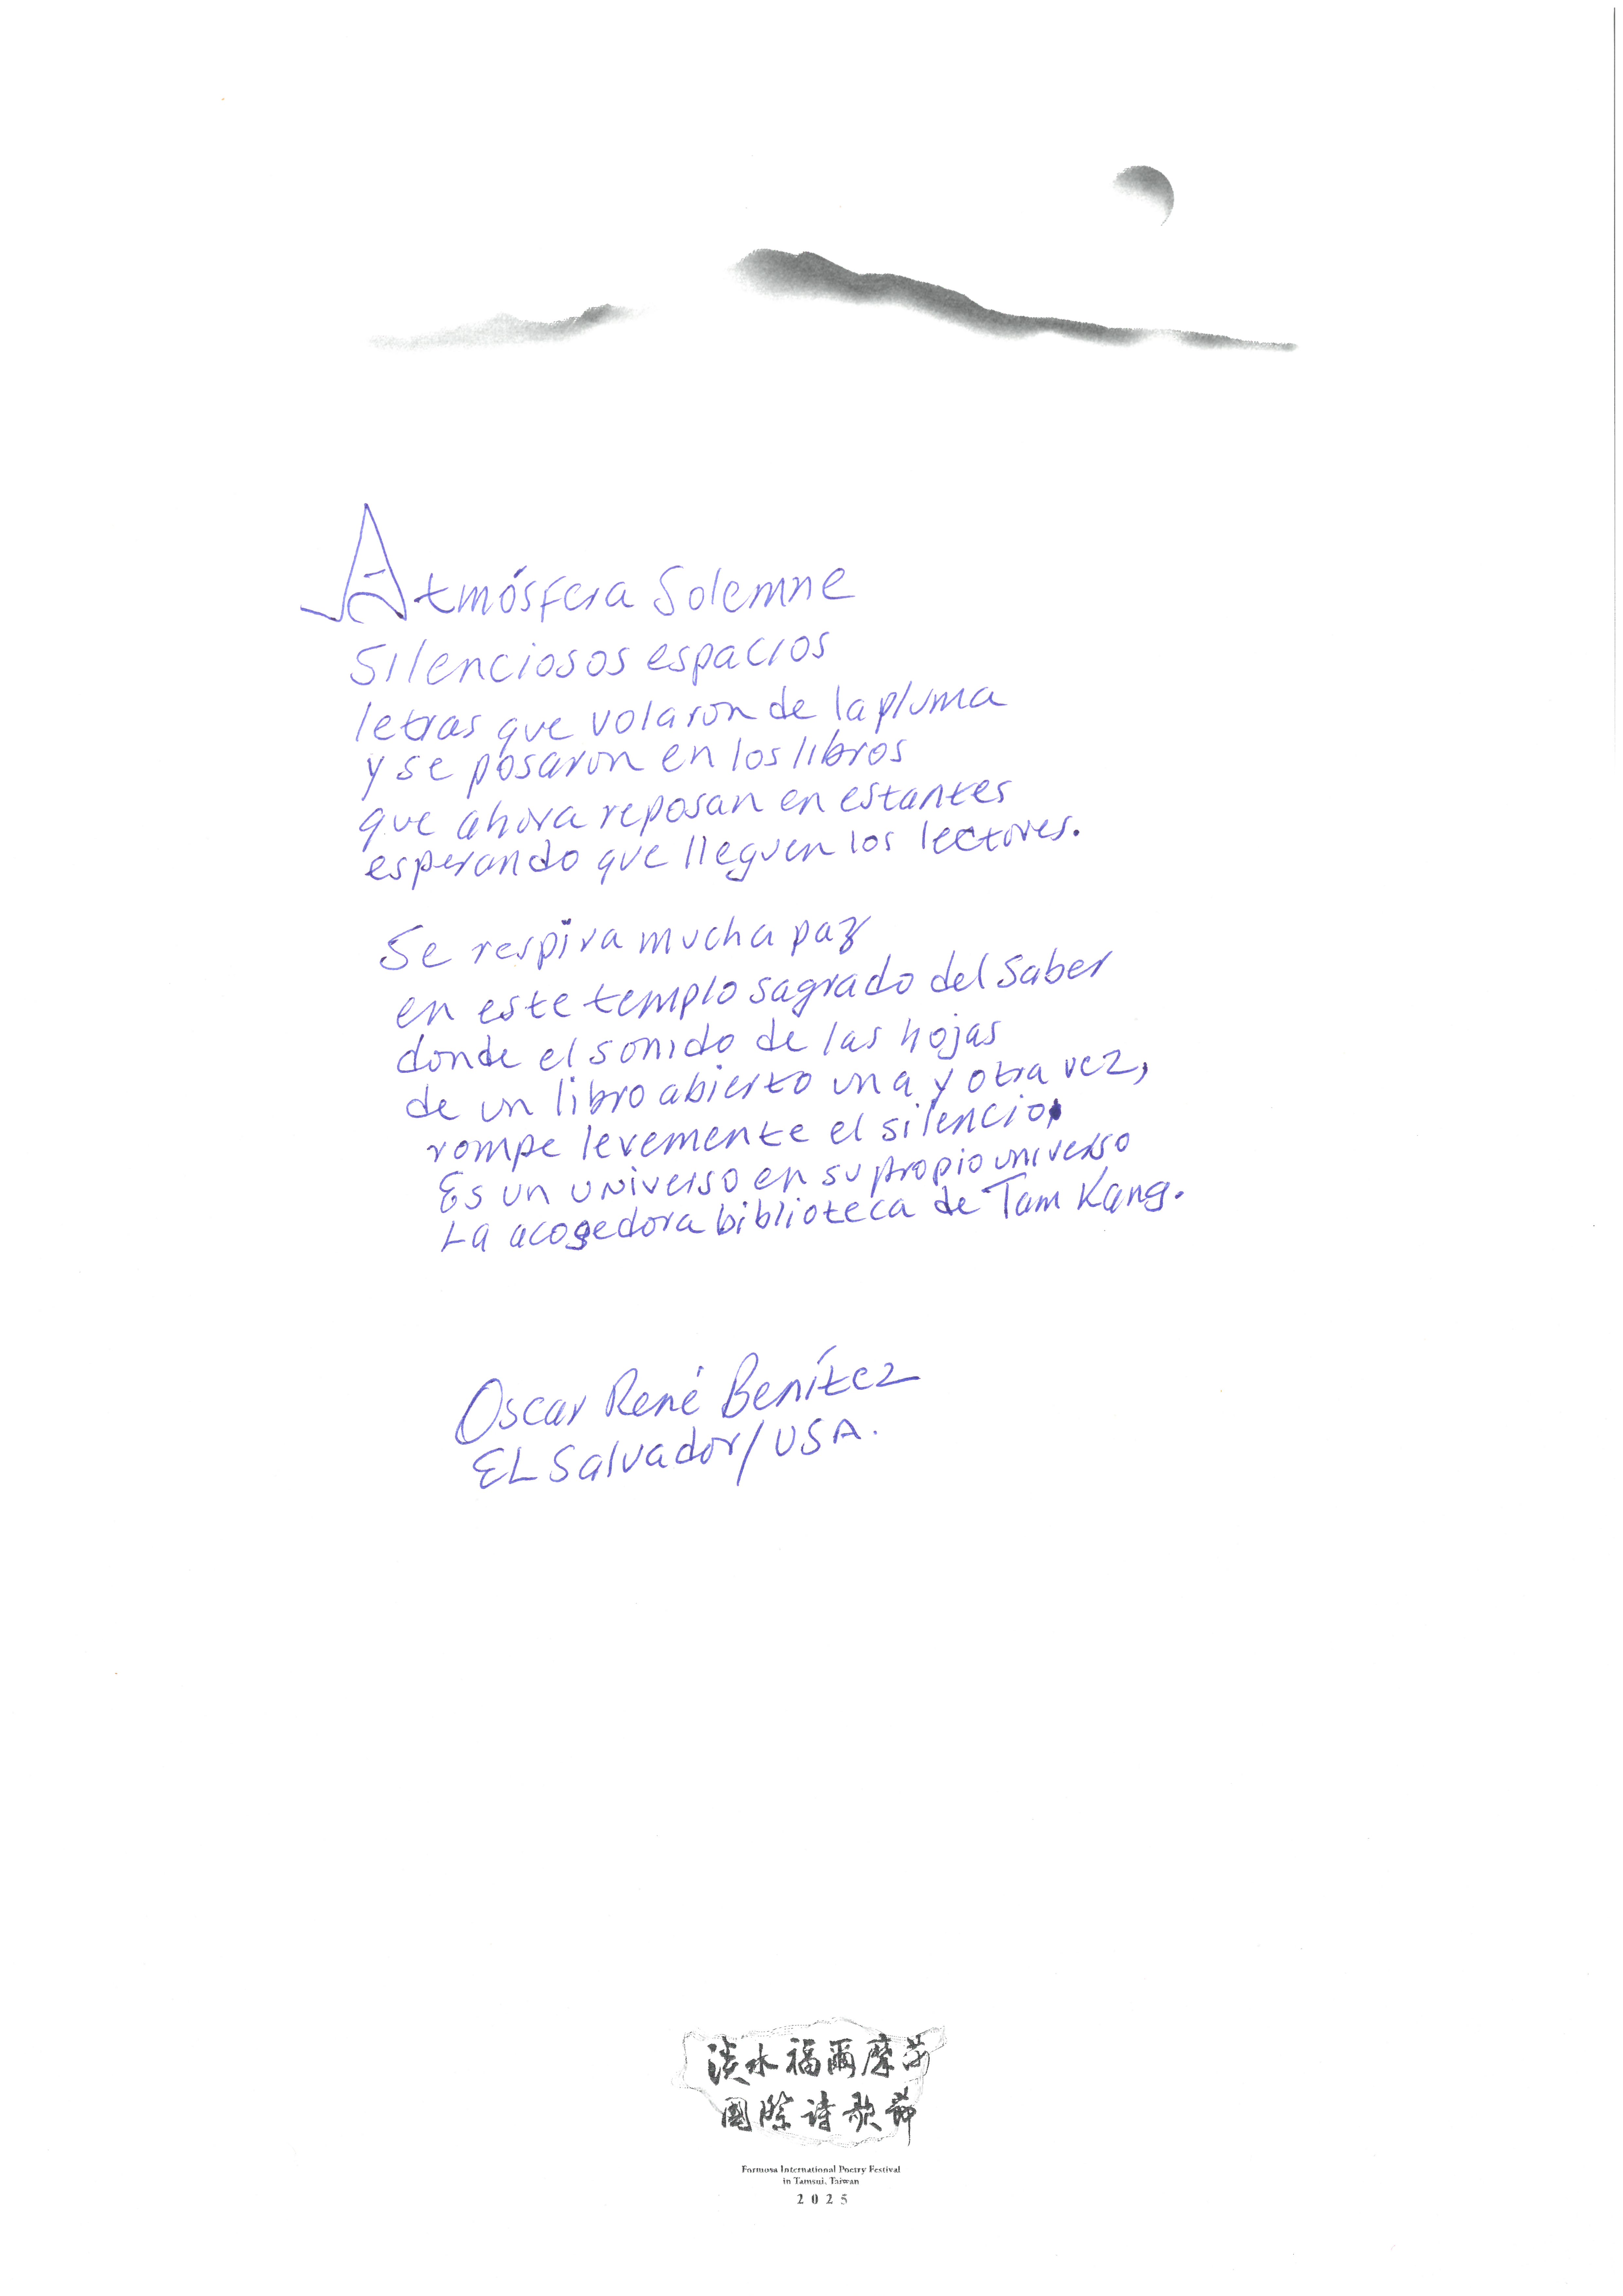 Atmósfera Solemne
Silenciosos espacios
letras que volaron de la pluma
y se posaron en los libros
que ahora reposan en estantes
esperando que lleguen los lectores.
Se respira mucha paz
en este templo sagrado del Saber
donde el sonido de las hojas
de un libro abierto una y otra vez,
rompe levemente el silencio.
Es un universo en su propio universo
La acogedora biblioteca de Tam Kang.
Oscar René Benítez
EL Salvador/USA.
淡水福爾摩莎
國際詩歌節
Formosa International Poetry Festival
in Tamsui, Taiwan
2025